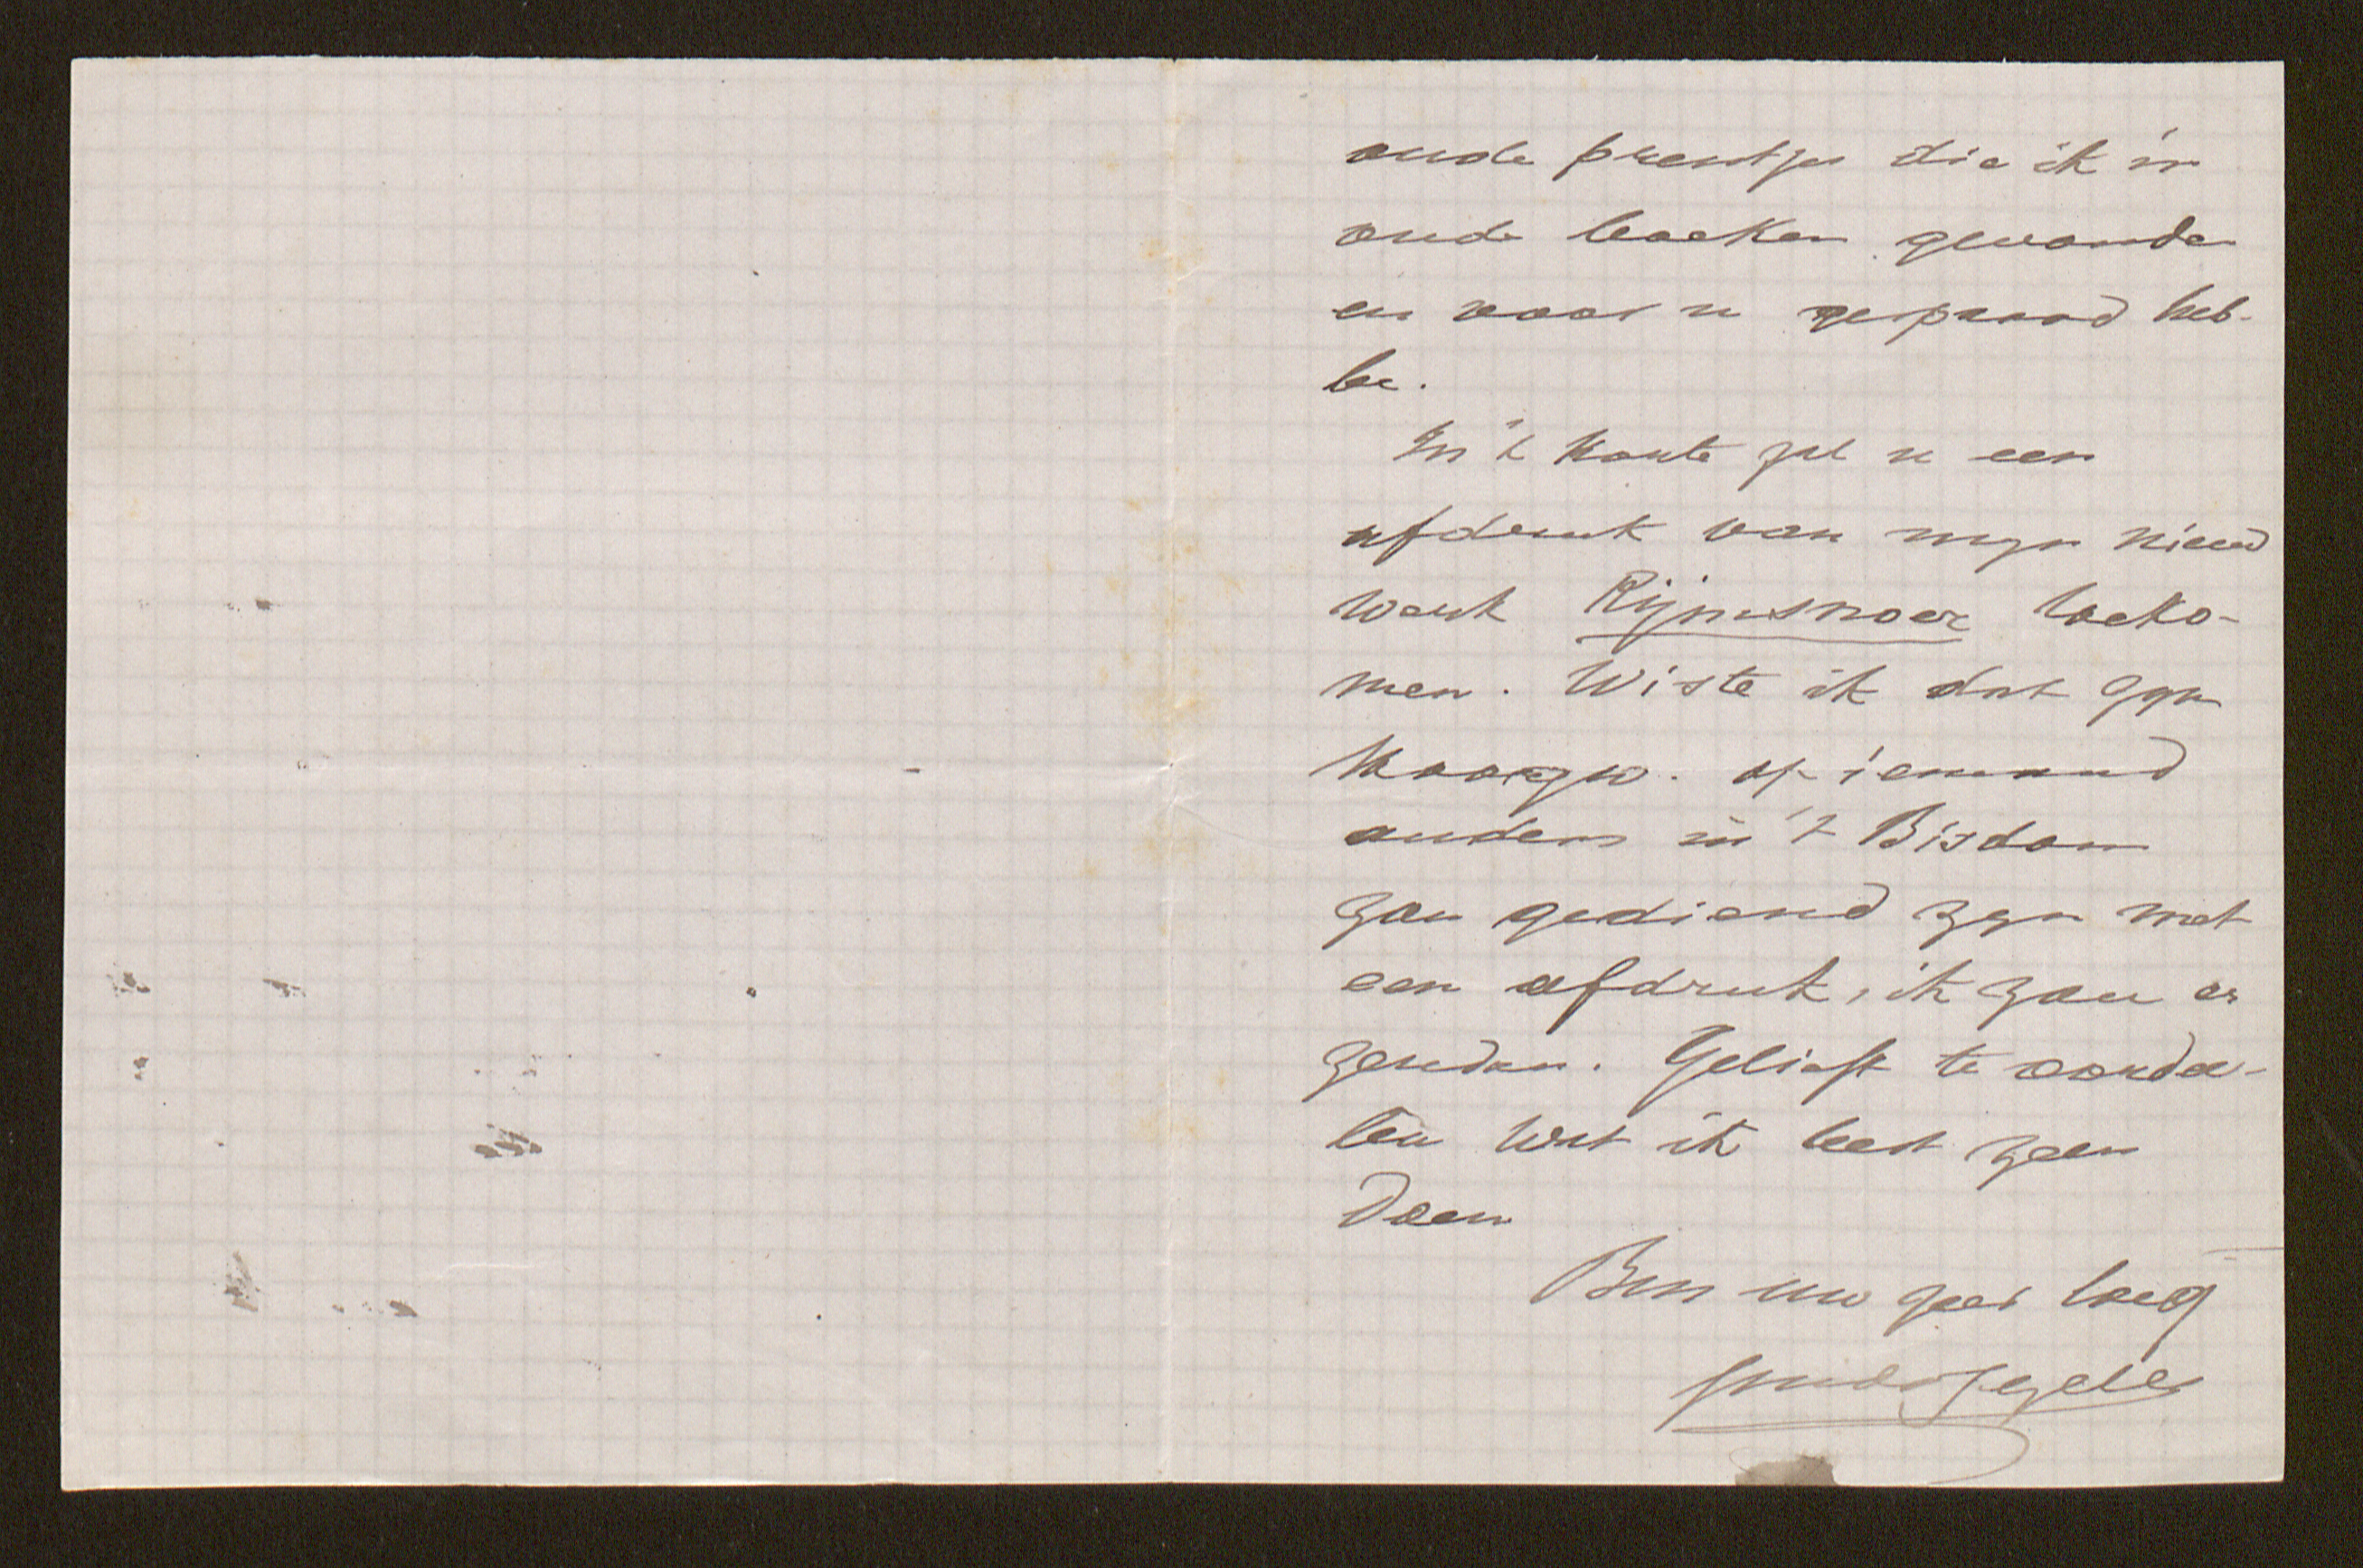 oude prentjes die ik in
oude boeken gevonden
en voor u gespaard heb-
be.
In 't korte zal u een
afdruk van mijn nieuw
werk Rijmsnoer toeko-
men. Wiste ik dat Zijn
Hoogw. of iemand
anders in 't Bisdom
zou gediend zijn met
een afdruk, ik zou er
zenden. Gelieft te oorde-
len wat ik best zou
doen
Ben uw zeer toeg
Guido Gezelle